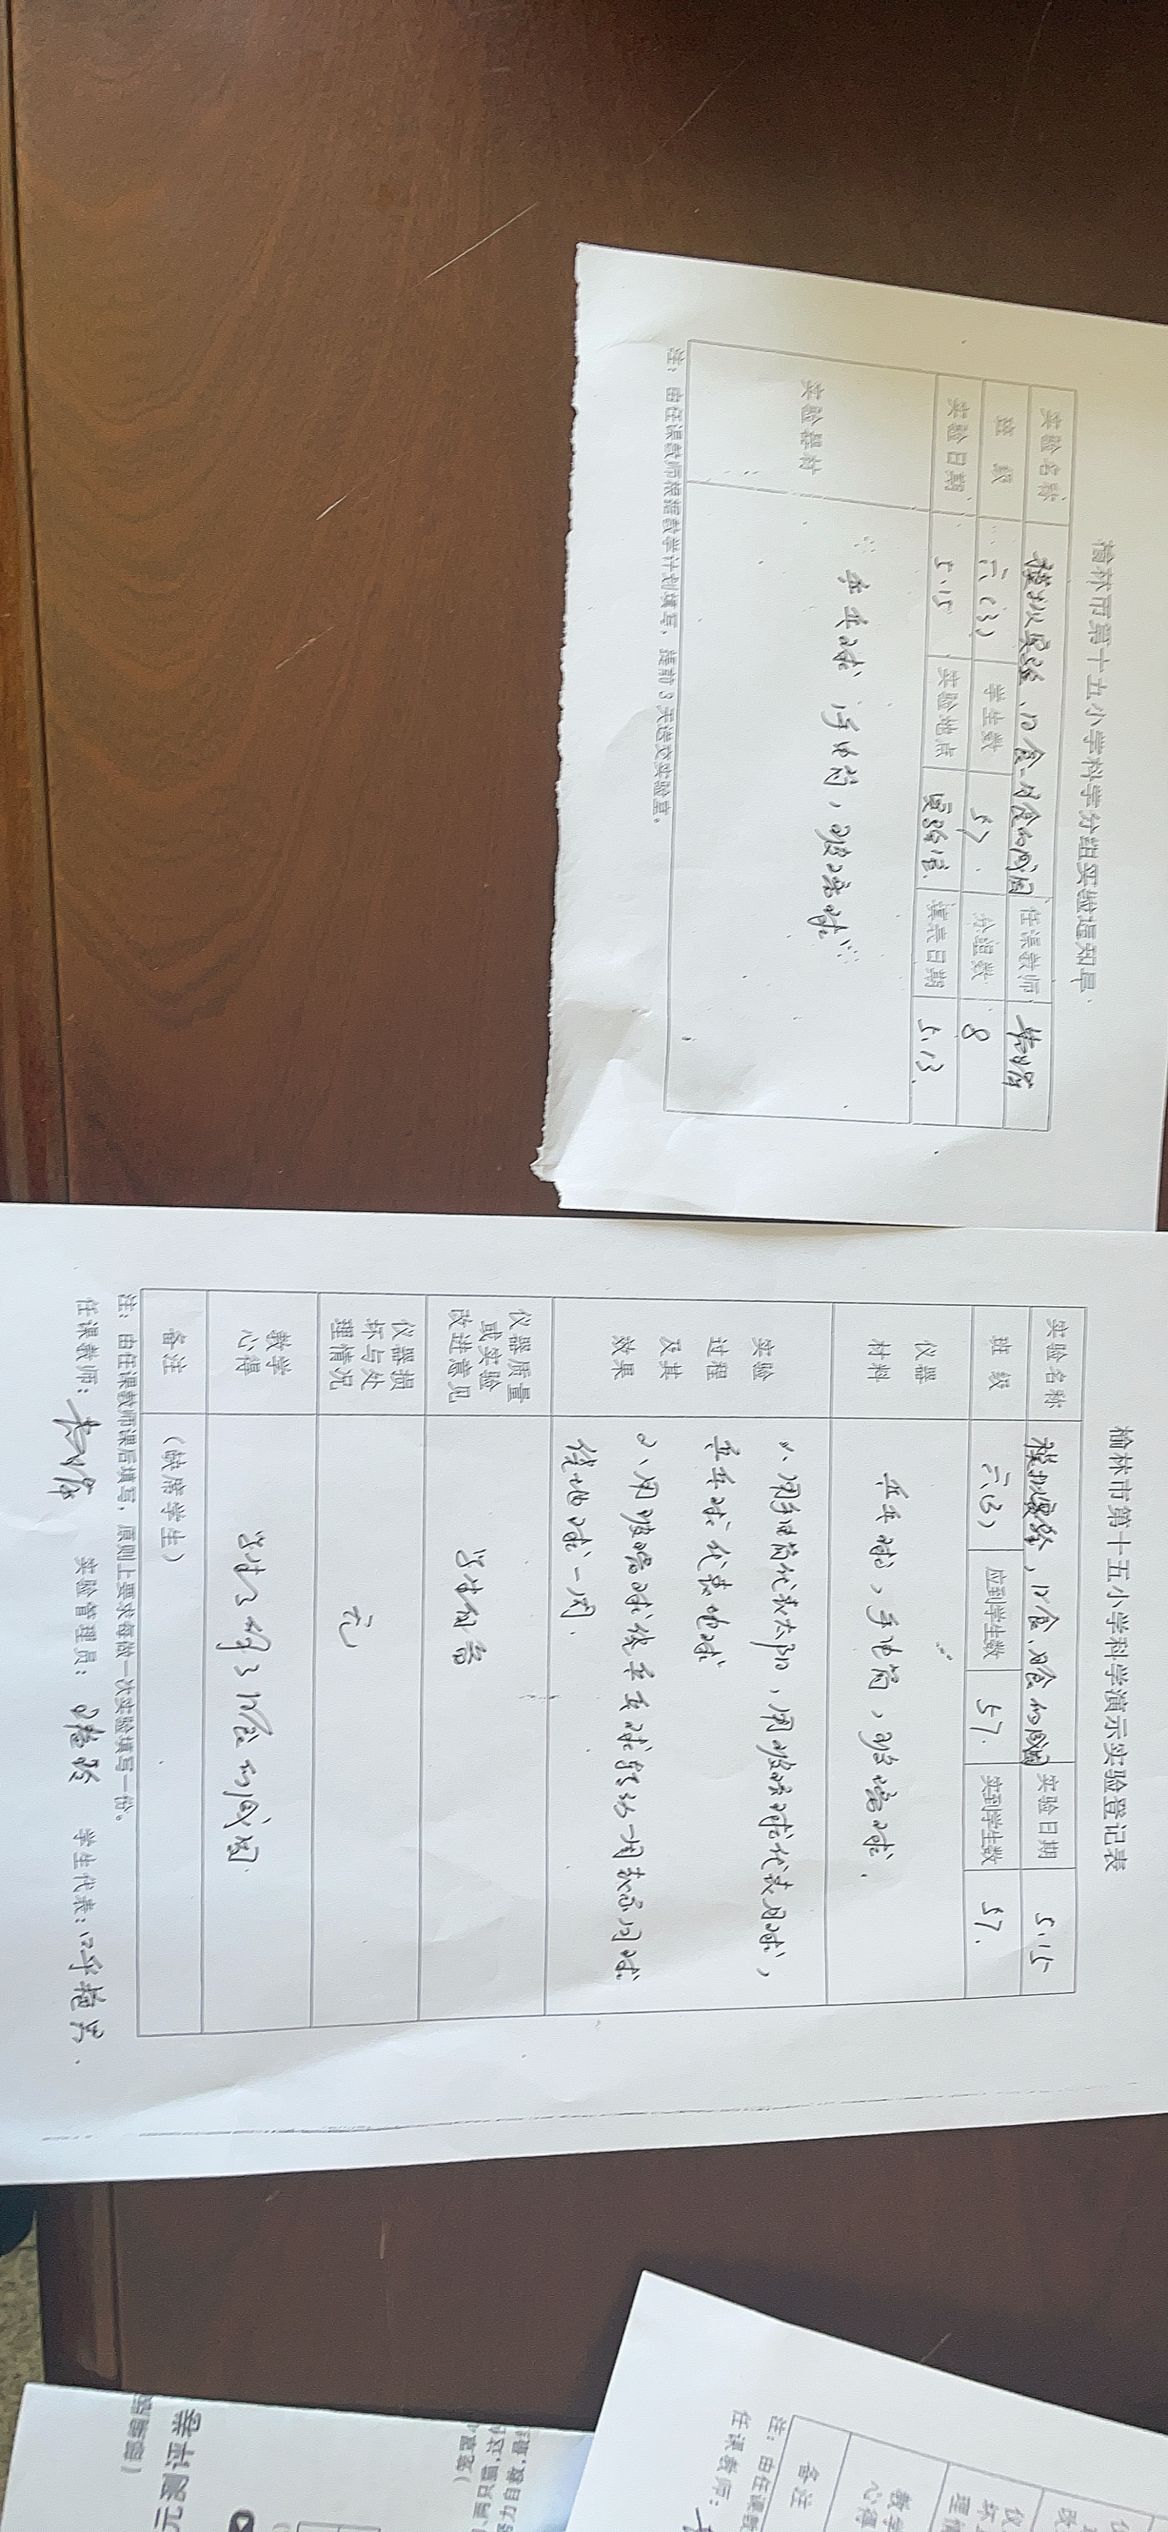 榆林市第十五小学科学分组实验通知单
实验名称 模拟实验、日食、月食的成因 任课教师
班 级 六(3) 学生数 57 分组数 8
实验日期 5.15 实验地点 实验室 填表日期 5.13
实验器材
乒乓球 手电筒,玻璃球
注:由任课教师根据教学计划填写,提前3天送交实验室。
榆林市第十五小学科学演示实验登记表
实验名称 模拟实验,日食、月食的成因 实验日期 5.15
班 级 六(3) 应到学生数 57. 实到学生数 57.
仪器
材料
乒乓球,手电筒,玻璃球.
实验
过程
及其
效果
1、用手电筒代表太阳,用玻璃球代表月球,
乒乓球代表地球
2、用玻璃球绕乒乓球转动一周表示月球
绕地球一周.
仪器质量
或实验
改进意见
仪器损
坏与处
理情况
无
教学
心得
日食的成因.
备注 (缺席学生)
注:由任课教师课后填写,原则上要求每做一次实验填写一份。
任课教师: 实验管理员: 学生代表:
注:由任课教
任课教师:
备注
教学
心得
元测评卷
(部编版